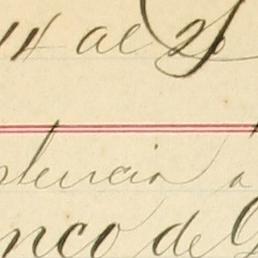 14 al 2
stencia a
nco de G